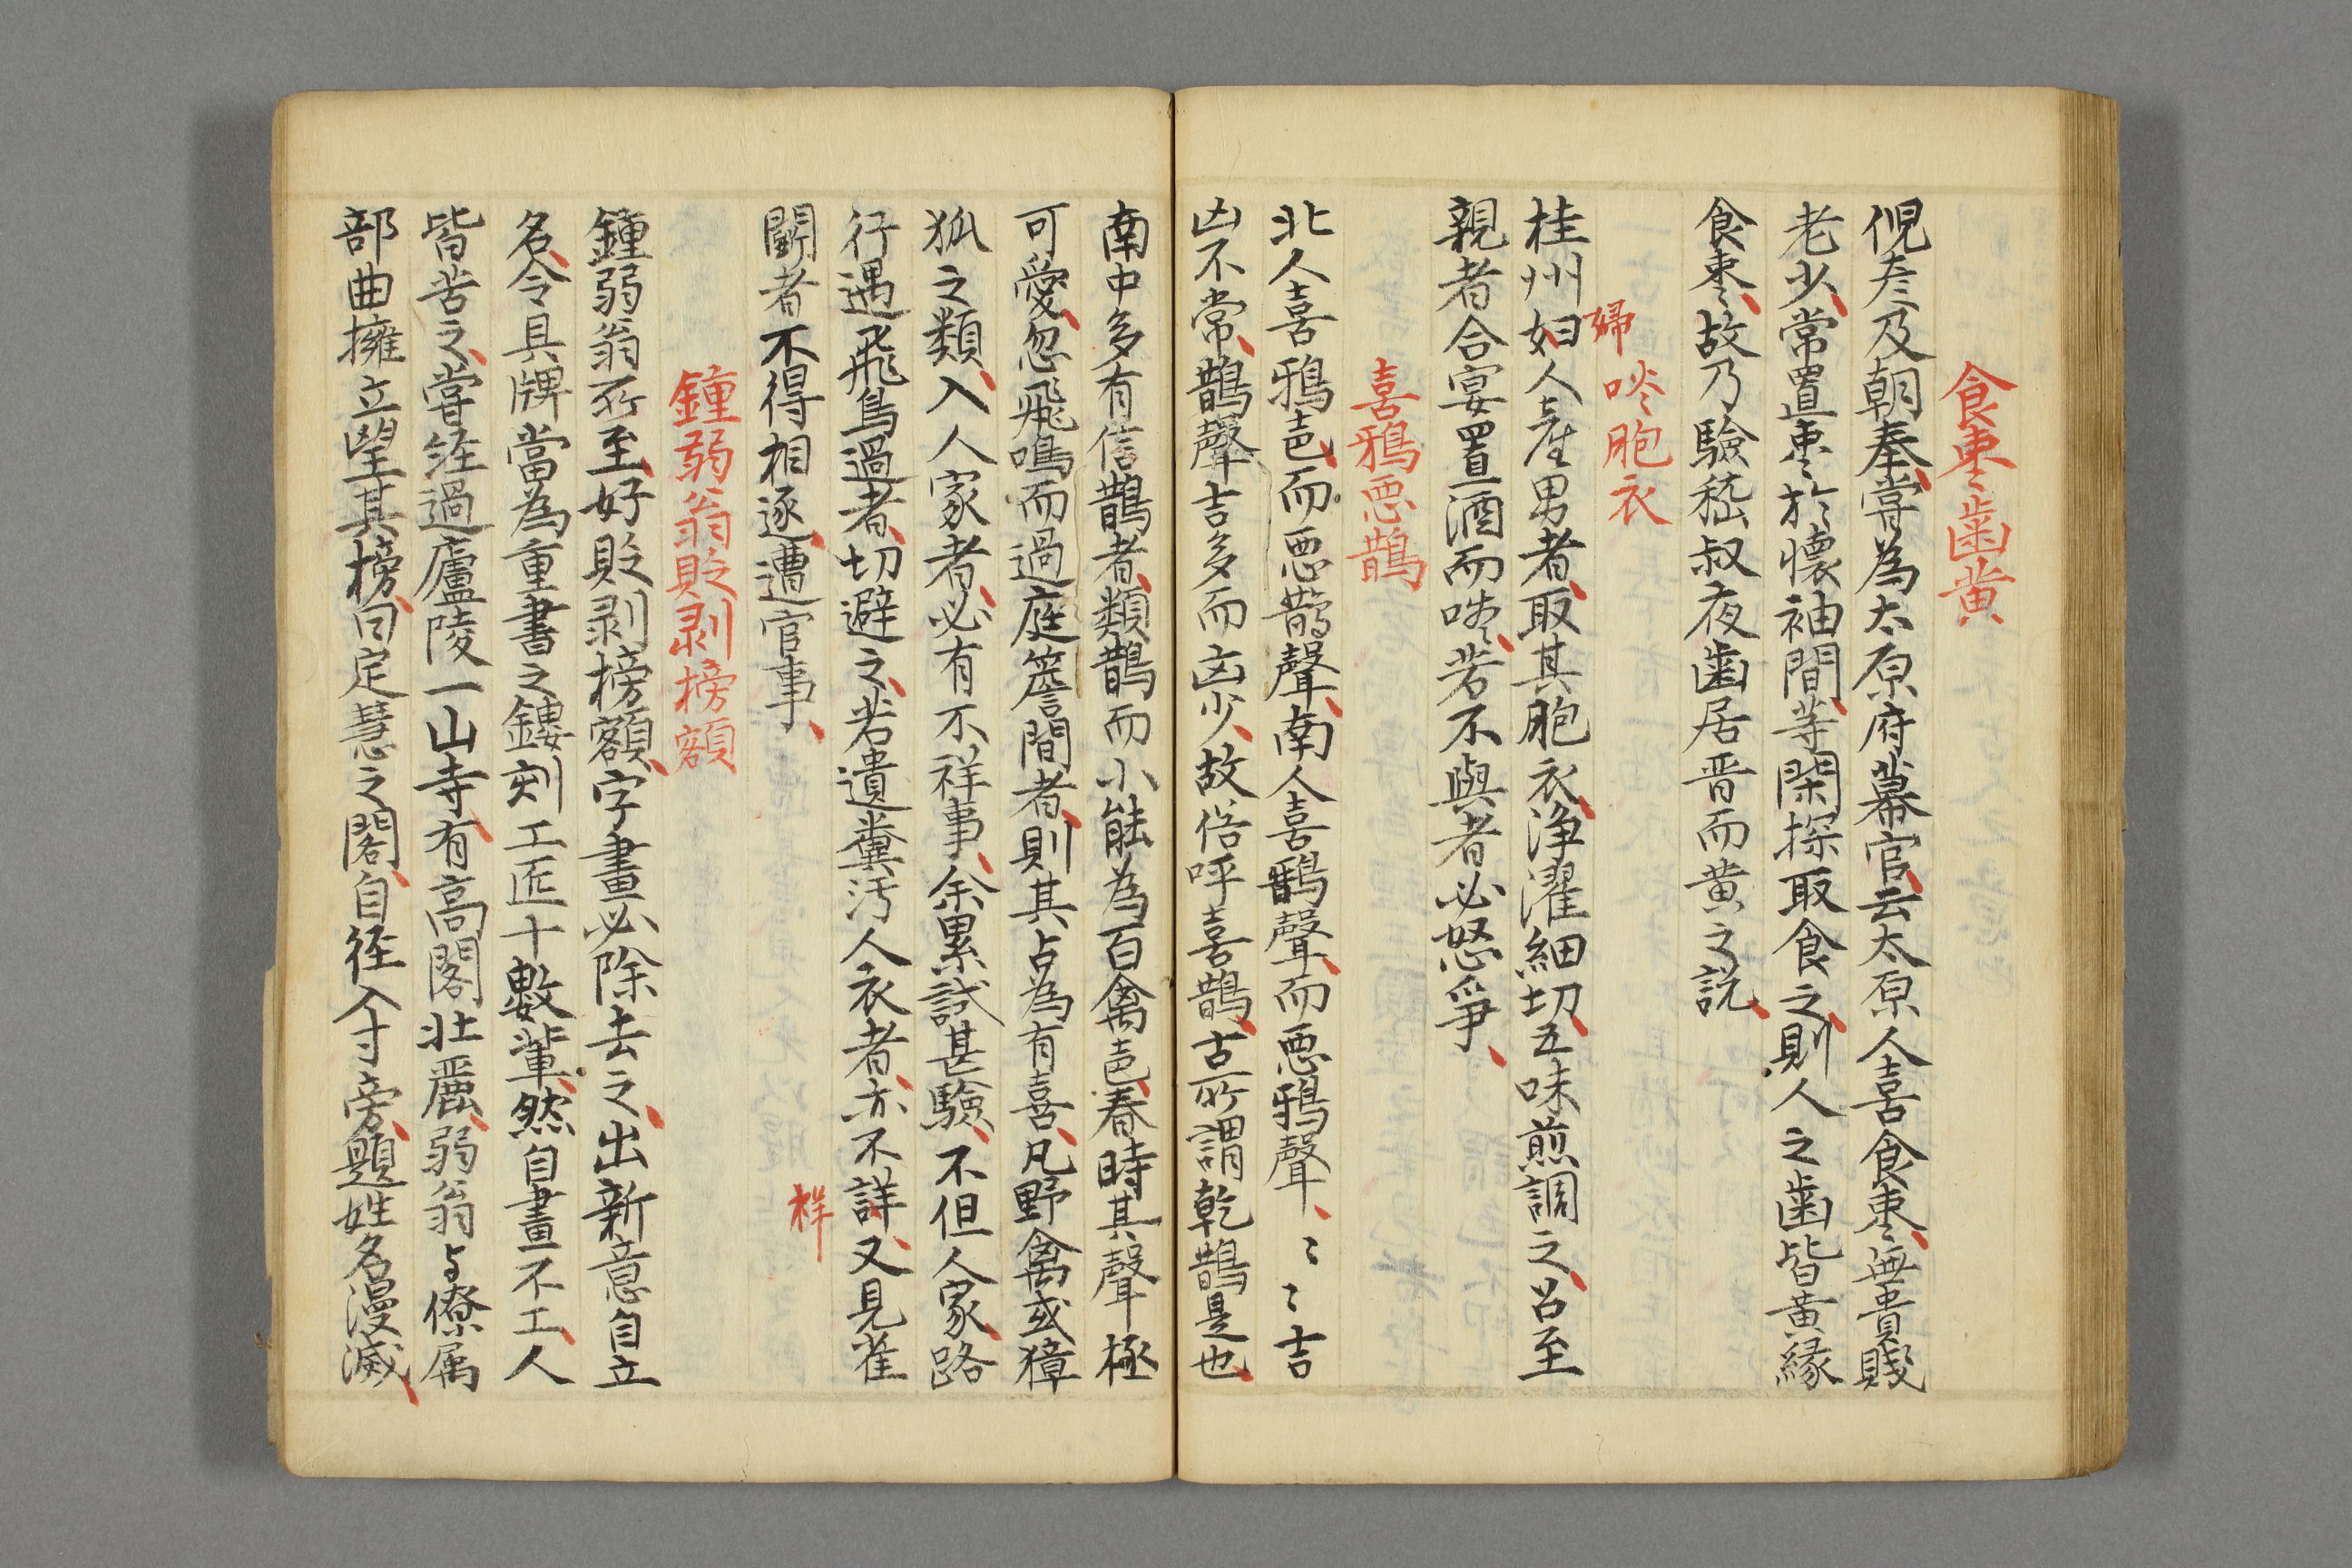 食棗歯黄
倪彥及朝奉嘗為太原府幕官云太原人喜食棗無貴賤
老少常置棗於懷袖間等閑探取食之則人之歯皆黄縁
食棗故乃驗嵇叔夜歯居晋而黄之説
啖胞衣
婦
桂州妇人産男者取其胞衣浄濯細切五味煎調之召至
親者合宴置酒而啖若不與者必怒爭
喜鴉悪鵲
北人喜鴉声而悪鵲聲南人喜鵲聲而悪鴉聲〻〻吉
凶不常鵲聲吉多而凶少故俗呼喜鵲古所謂乾鵲是也
南中多有信鵲者類鵲而小能為百禽声春時其聲極
可愛忽飛鳴而過庭簷間者則其占為有喜凡野禽或獐
狐之類入人家者必有不祥事余累試甚驗不但人家路
行遇飛鳥過者切避之若遺糞汚人衣者亦不詳又見雀
祥
鬭者不得相逐遭官事
鍾弱翁貶剥榜額
鍾弱翁所至好貶剥榜額字畫必除去之出新意自立
名令具牌當為重書之鏤刻工匠十數輩然自畫不工人
皆苦之嘗経過廬陵一山寺有高閣壮麗弱翁与僚属
部曲擁立望其榜曰定慧之閣自径入寸旁題姓名漫滅